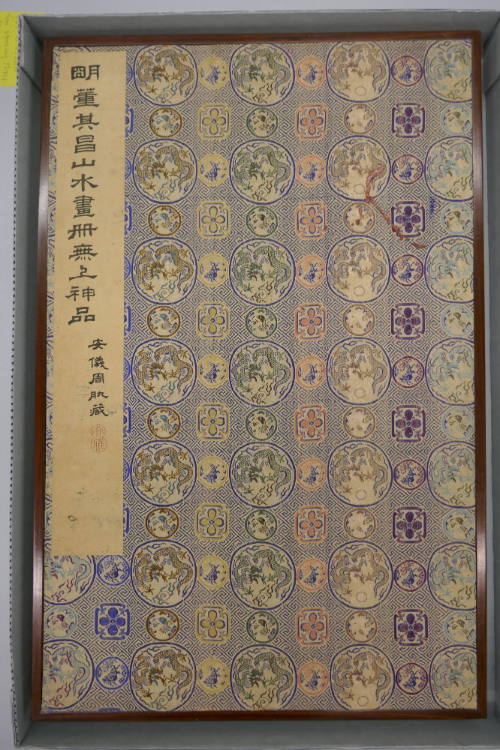 明董其昌山水畫冊無上神品
安儀周所藏